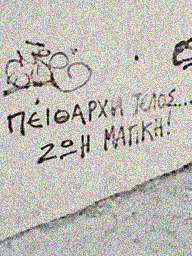 ΠΕΙΘΑΡΧΙΑ ΤΕΛΟΣ...
ΖΩΗ ΜΑΓΙΚΗ!